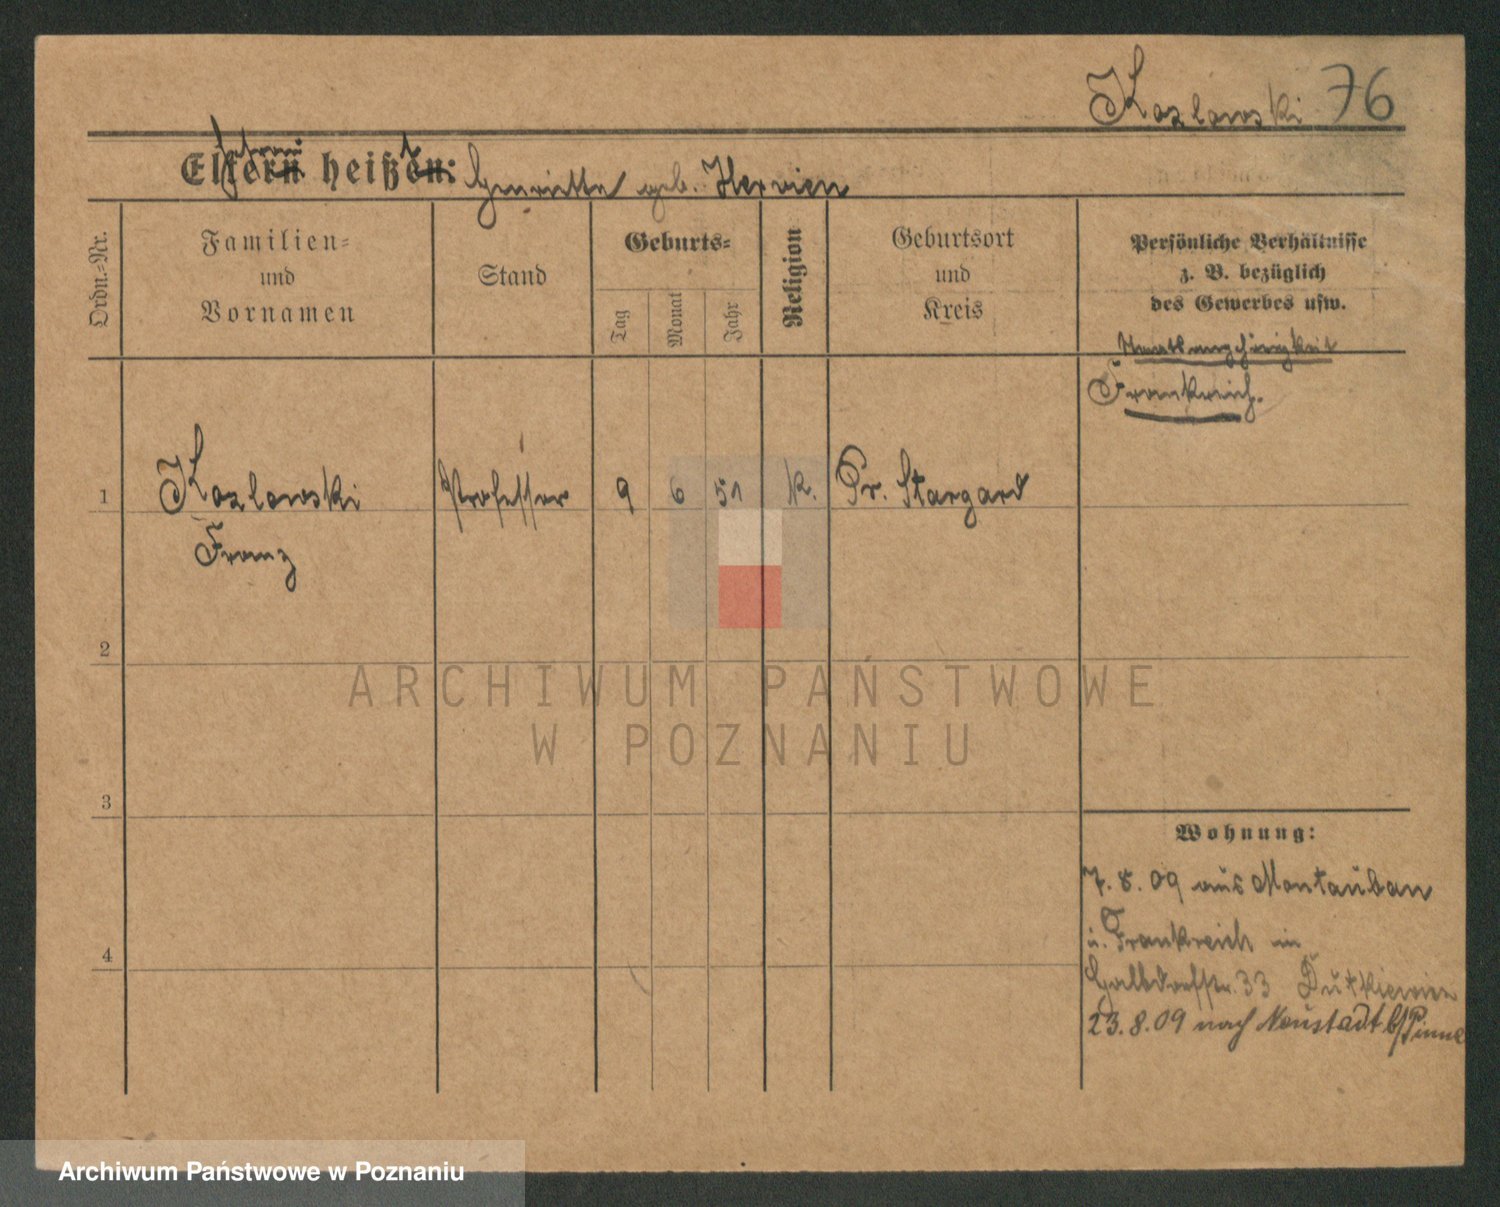 Kozlowski 76
Eltern heißen: Henriette geb. Hervien
Ordn.-Nr.
Familien-
und
Vornamen
Stand
Geburts-
Tag
Monat
Jahr
Religion
Geburtsort
und
Kreis
Persönliche Verhältnisse
z. B. bezüglich
des Gewerbes usw.
Staatsangehörigkeit
Frankreich.
1 Kozlowski Professor 9 6 51 k. Pr. Stargard
Franz
2
ARCHIWUM PAŃSTWOWE
W POZNANIU
3
Wohnung:
7. 8. 09 aus Montauban
i. Frankreich in
33
4
23. 8. 09 nach Neustadt b/Pinne
Archiwum Państwowe w Poznaniu